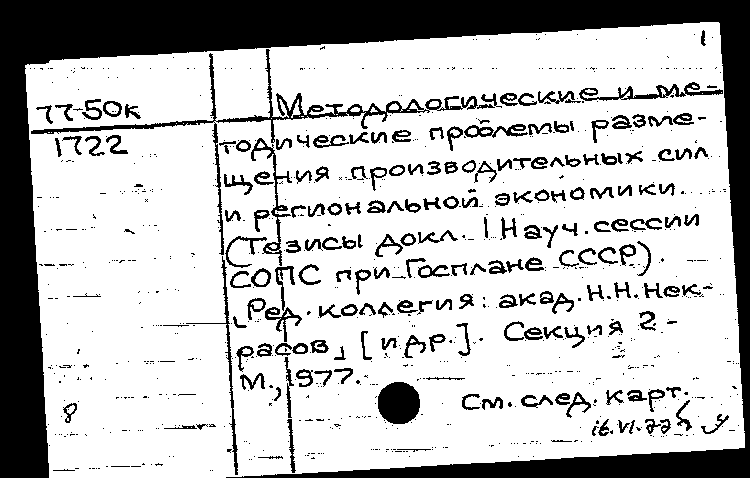 1
77-50к Методологические и ме-
1722 тодические проблемы разме-
щения производительных сил
и региональной экономики.
(Тезисы докл. I Науч. сессии
СОПС при Госплане СССР).
[Ред. коллегия: акад. Н.Н. Нек-
расов] [и др.]. Секция 2 -
М., 1977.
8 См. след. карт.
16.VI.77